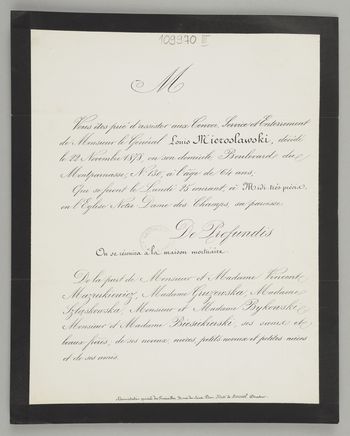 109970 III
M
Vous êtes prié d'assister aux Convoi, Service et Enterrement
de Monsieur le Général Louis Mieroslawski, décédé
le 22 Novembre 1878 en son domicile, Boulevard du
Montparnasse, N° 150, à l'âge de 64 ans,
Qui se feront le Lundi 25 courant, à Midi très précis
en l'Eglise Notre Dame des Champs, sa paroisse.
De Profundis
On se réunira à la maison mortuaire.
De la part de Monsieur et Madame Vincent
Mazurkiewicz, Madame Gruzewska, Madame
Szlaskowska, Monsieur et Madame Bykowski
Monsieur et Madame Biesiekierski, ses sœurs et
beaux-frères, de ses neveux nièces, petits neveux et petites nièces
et de ses amis.